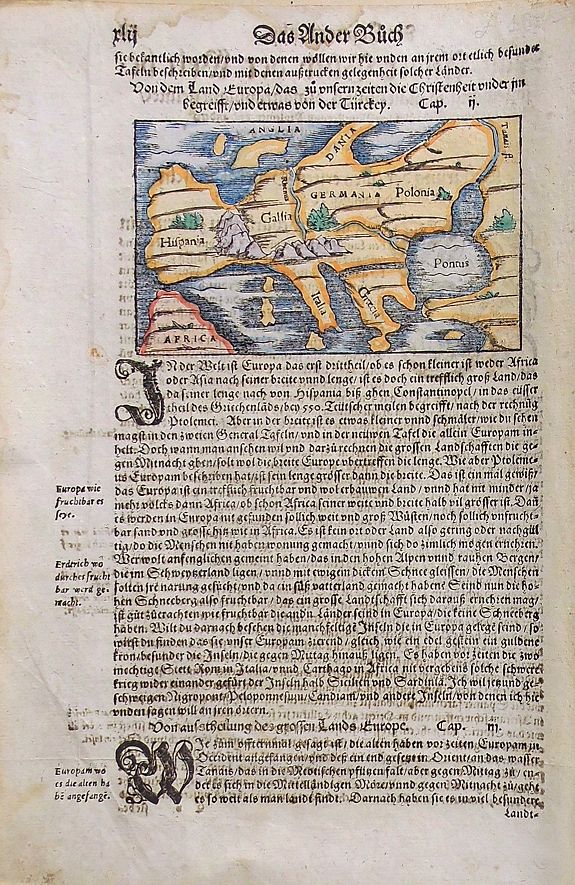 xlij Das Ander Bůch
sie bekantlich worden/vnd von denen wöllen wir hie vnden an jrem ort etlich besunder
Tafeln beschreiben/vnd mit denen außtrucken gelegenheit solcher Länder.
Von dem Land Europa/das zů vnsern zeiten die Christenheit vnder jm
begreifft/vnd etwas von der Türckey. Cap. ij.
ANGLIA
DANIA
Tanais fl.
GERMANIA
Polonia
Gallia
Hispania
Pontus
Italia
Grecia
AFRICA
IN der Welt ist Europa das erst drittheil/ob es schon kleiner ist weder Africa
oder Asia nach seiner breite vnnd lenge/ist es doch ein trefflich groß Land/das
da seiner lenge nach von Hispania biß ghen Constantinopel/in das eüsser
theil des Griechenlãds/bey 550. Teütscher meilen begreifft/nach der rechnũg
Ptolemei. Aber in der breite ist es etwas kleiner vnnd schmäler/wie du sehen
magst in den zweien General Tafeln/vnd in der neüwen Tafel die allein Europam in-
helt. Doch wann man ansehen wil vnd darzů rechnen die grossen Landschafften die ge-
gen Mitnacht ghen/solt wol die breite Europe vbertreffen die lenge. Wie aber Ptoleme-
us Europam beschriben hat/ist sein lenge grösser dann die breite. Das ist ein mal gewiß/
das Europa ist ein trefflich fruchtbar vnd wol erbauwen Land/vnnd hat nit minder/ja
mehr volcks dann Africa/ob schon Africa seiner weite vnd breite halb vil grösser ist. Dañ
es werden in Europa nit gefunden söllich weit vnd groß Wüsten/noch söllich vnfrucht-
bar sand vnd grosse hitz wie in Africa. Es ist kein ort oder Land also gering oder nachgül
tig/do die Menschen nit haben wonung gemacht/vnnd sich do zimlich mögen ernehren.
Wer wolt anfenglich gemeint haben/das in den hohen Alpen vnnd rauhen Bergen/
die im Schweytzerland ligen/vnnd mit ewigem dickem Schnee gleissen/die Menschen
solten jre narung gesůcht/vnd da ein süß vatterland gemacht haben? Seind nun die ho-
hen Schneeberg also fruchtbar/das ein grosse Landschafft sich darauß ernehren mag/
ist gůt zů trachten wie fruchtbar die andn Länder seind in Europa/die keine Schneeberg
haben. Wilt du darnach besehen die manchfeltige Inseln die in Europa gelegẽ seind/so
wirst du finden das sie vnser Europam zierend/gleich wie ein edel gestein ein guldene
kron/besunder die Inseln/die gegen Mittag hinauß ligen. Es haben vor zeiten die zwo
mechtige Stett Rom in Italia/vnd Carthago in Africa nit vergebens solche schwere
krieg wider einander gefürt der Inseln halb Sicilien vnd Sardinia. Ich wil jetzund ge-
schweigen Nigropont/Peloponnesum/Candiam/vnd andere Inseln/von denen ich hie
vnden sagen will an jren örtern.
Von außtheilung des grossen Lands Europe. Cap. iij.
WIe zum offtermal gesagt ist/die alten haben vor zeiten Europam in
Occident angefangen/vnd deß ein end gesetzt in Orient an das wasser
Tanais/das in die Meotischen pfützen falt/aber gegen Mittag zů/en-
det es sich in die Mittelländigen Möre/vnnd gegen Mitnacht zů/geht
es so weit als man landt findt. Darnach haben sie es in viel besundere
Landt-
Europa wie
fruchtbar es
seye.
Erdrich wo
durch es frucht
bar werd ge-
macht.
Europam wo
es die alten ha
bẽ angefangẽ.